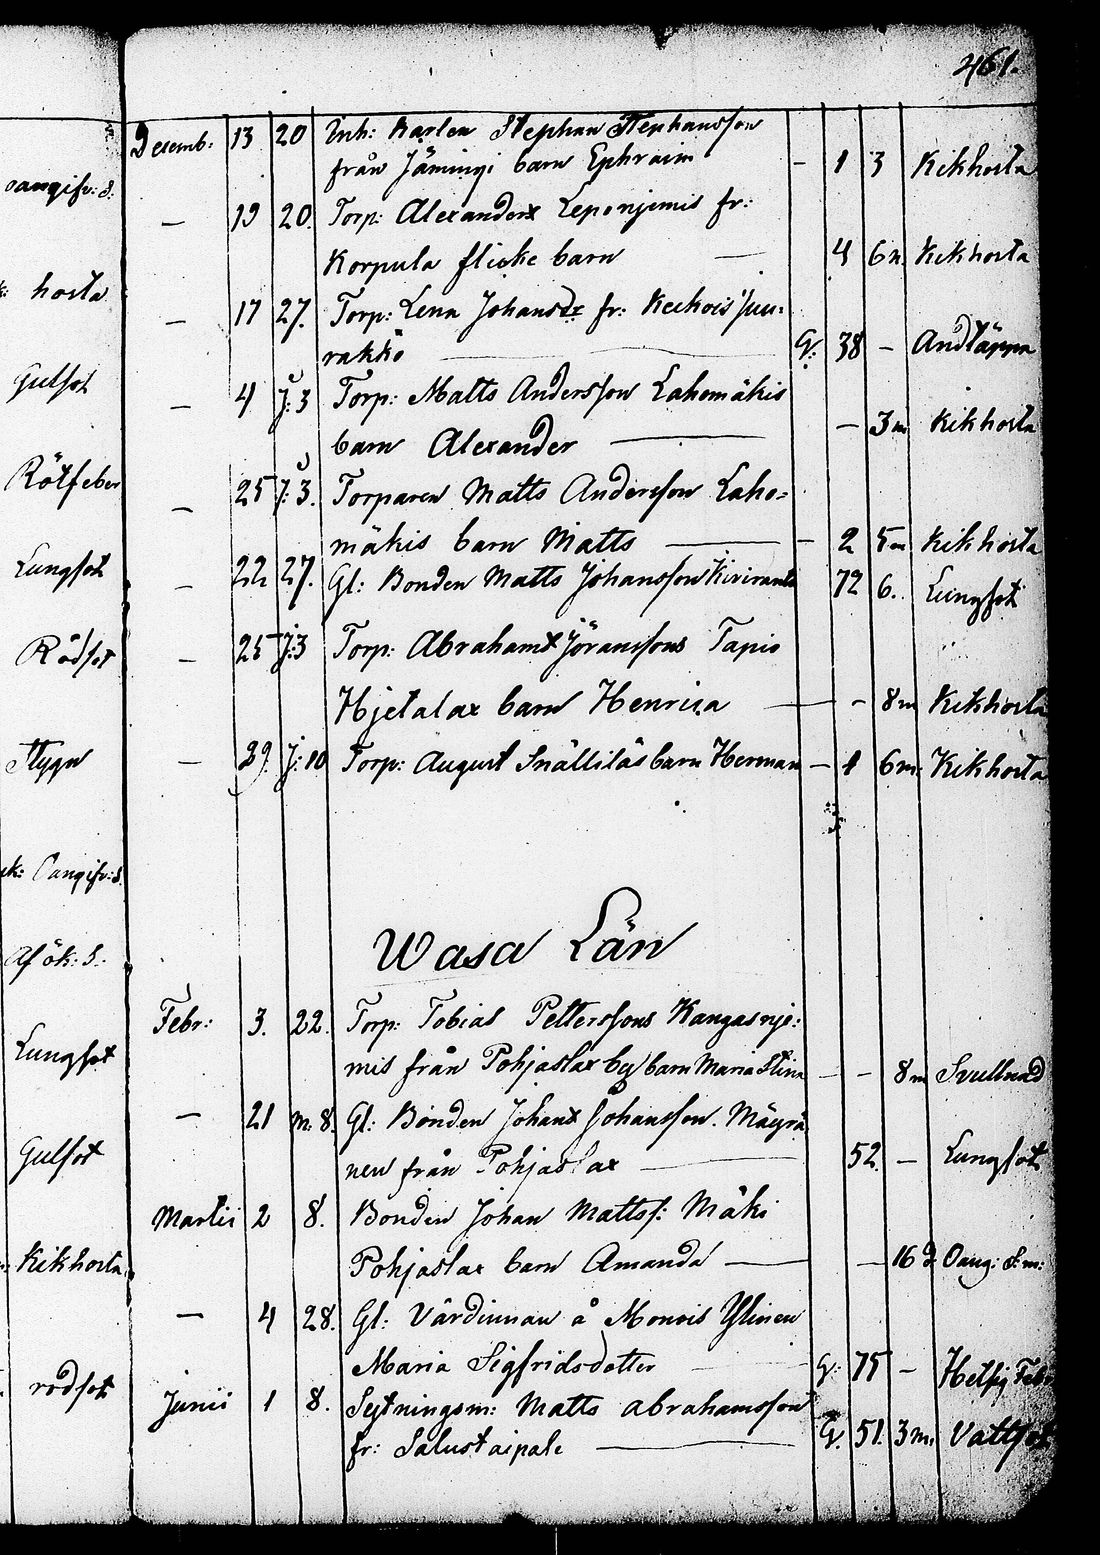 461.
oangifv: s.
hosta
Gulsot
Rötfeber
Lungsot
Rödsot
Stygn
Oangifv: s.
Af ök: s.
Lungsot
Gulsot
Kikhosta
rödsot
Decemb: 13 20 Inh: Karlen Stephan Stephansson
från Jämingi barn Ephraim - 1 3 Kikhosta
- 19 20. Torp: Alexanders Leponjemis fr:
Korpula flicke barn - 4 6m. Kikhosta
- 17 27. Torp: Lena Johansdr fr: Juu-
rakko - G: 38 - Andtäppa
- 4 J: 3 Torp: Matts Andersson Lahomäkis
barn Alexander - - 3m Kikhosta
- 25 J: 3. Torparen Matts Andersson Laho-
mäkis barn Matts - - 2 5m Kikhosta
- 22 27. Gl: Bonden Matts Johansson Kiriranta 72 6. Lungsot
- 25 J: 3 Torp: Abrahams Jöranssons Tapio
Hjetalax barn Henrica - - 8m Kikhosta
- 29. J: 10 Torp: August Snälliläs barn Herman - 1 6m: Kikhosta
Wasa Län
Febr: 3. 22. Torp: Tobias Petterssons Kangasnje:
mis från Pohjaslax by barn Maria Stina - - 8m Svullnad
- 21 m: 8. Gl: Bonden Johans Johansson. Mäyrä
nen från Pohjaslax - 52. - Lungsot
Martii 2 8. Bonden Johan Mattss: Mäki
Pohjaslax barn Amanda - - 16 d Oang: s:m:
- 4 28. Gl: Värdinnan å Monois Ylinen
Maria Sigfridsdotter - G: 75 -
Junii 1 8. Sytningsm: Matts Abrahamsson
fr: Salustaipale - G. 51. 3m: Vattsot